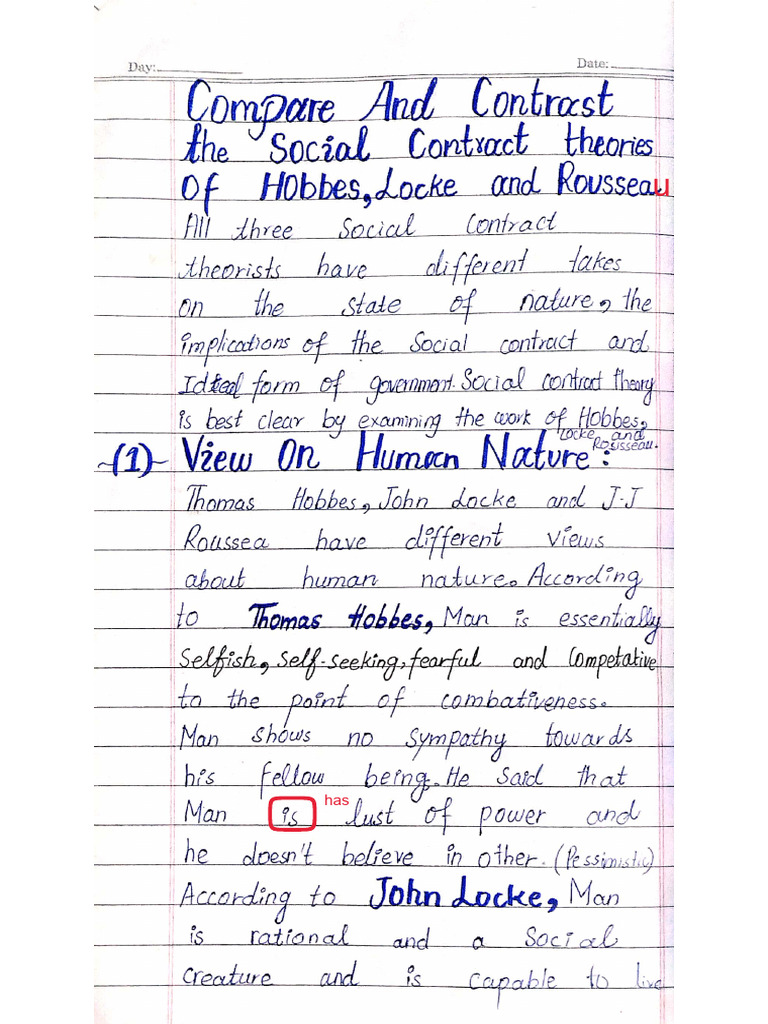 Day:
Date:
Compare And Contrast
the Social Contract theories
Of Hobbes, Locke and Rousseau
All three Social Contract
theorists have different takes
on the state of nature, the
implications of the Social contract and
form of government. Social contract theory
is best clear by examining the work of Hobbes,
Locke and
Rousseau.
(1) View On Human Nature:
Thomas Hobbes, John Locke and J.J
Roussea have different views
about human nature. According
to Thomas Hobbes, Man is essentially
Selfish, self-seeking, fearful and Competative
to the point of combativeness.
Man shows no sympathy towards
his fellow being. He said that
has
Man is lust of power and
he doesn't believe in other. (Pessimistic)
According to John Locke, Man
is rational and a Social
Creature and is capable to live